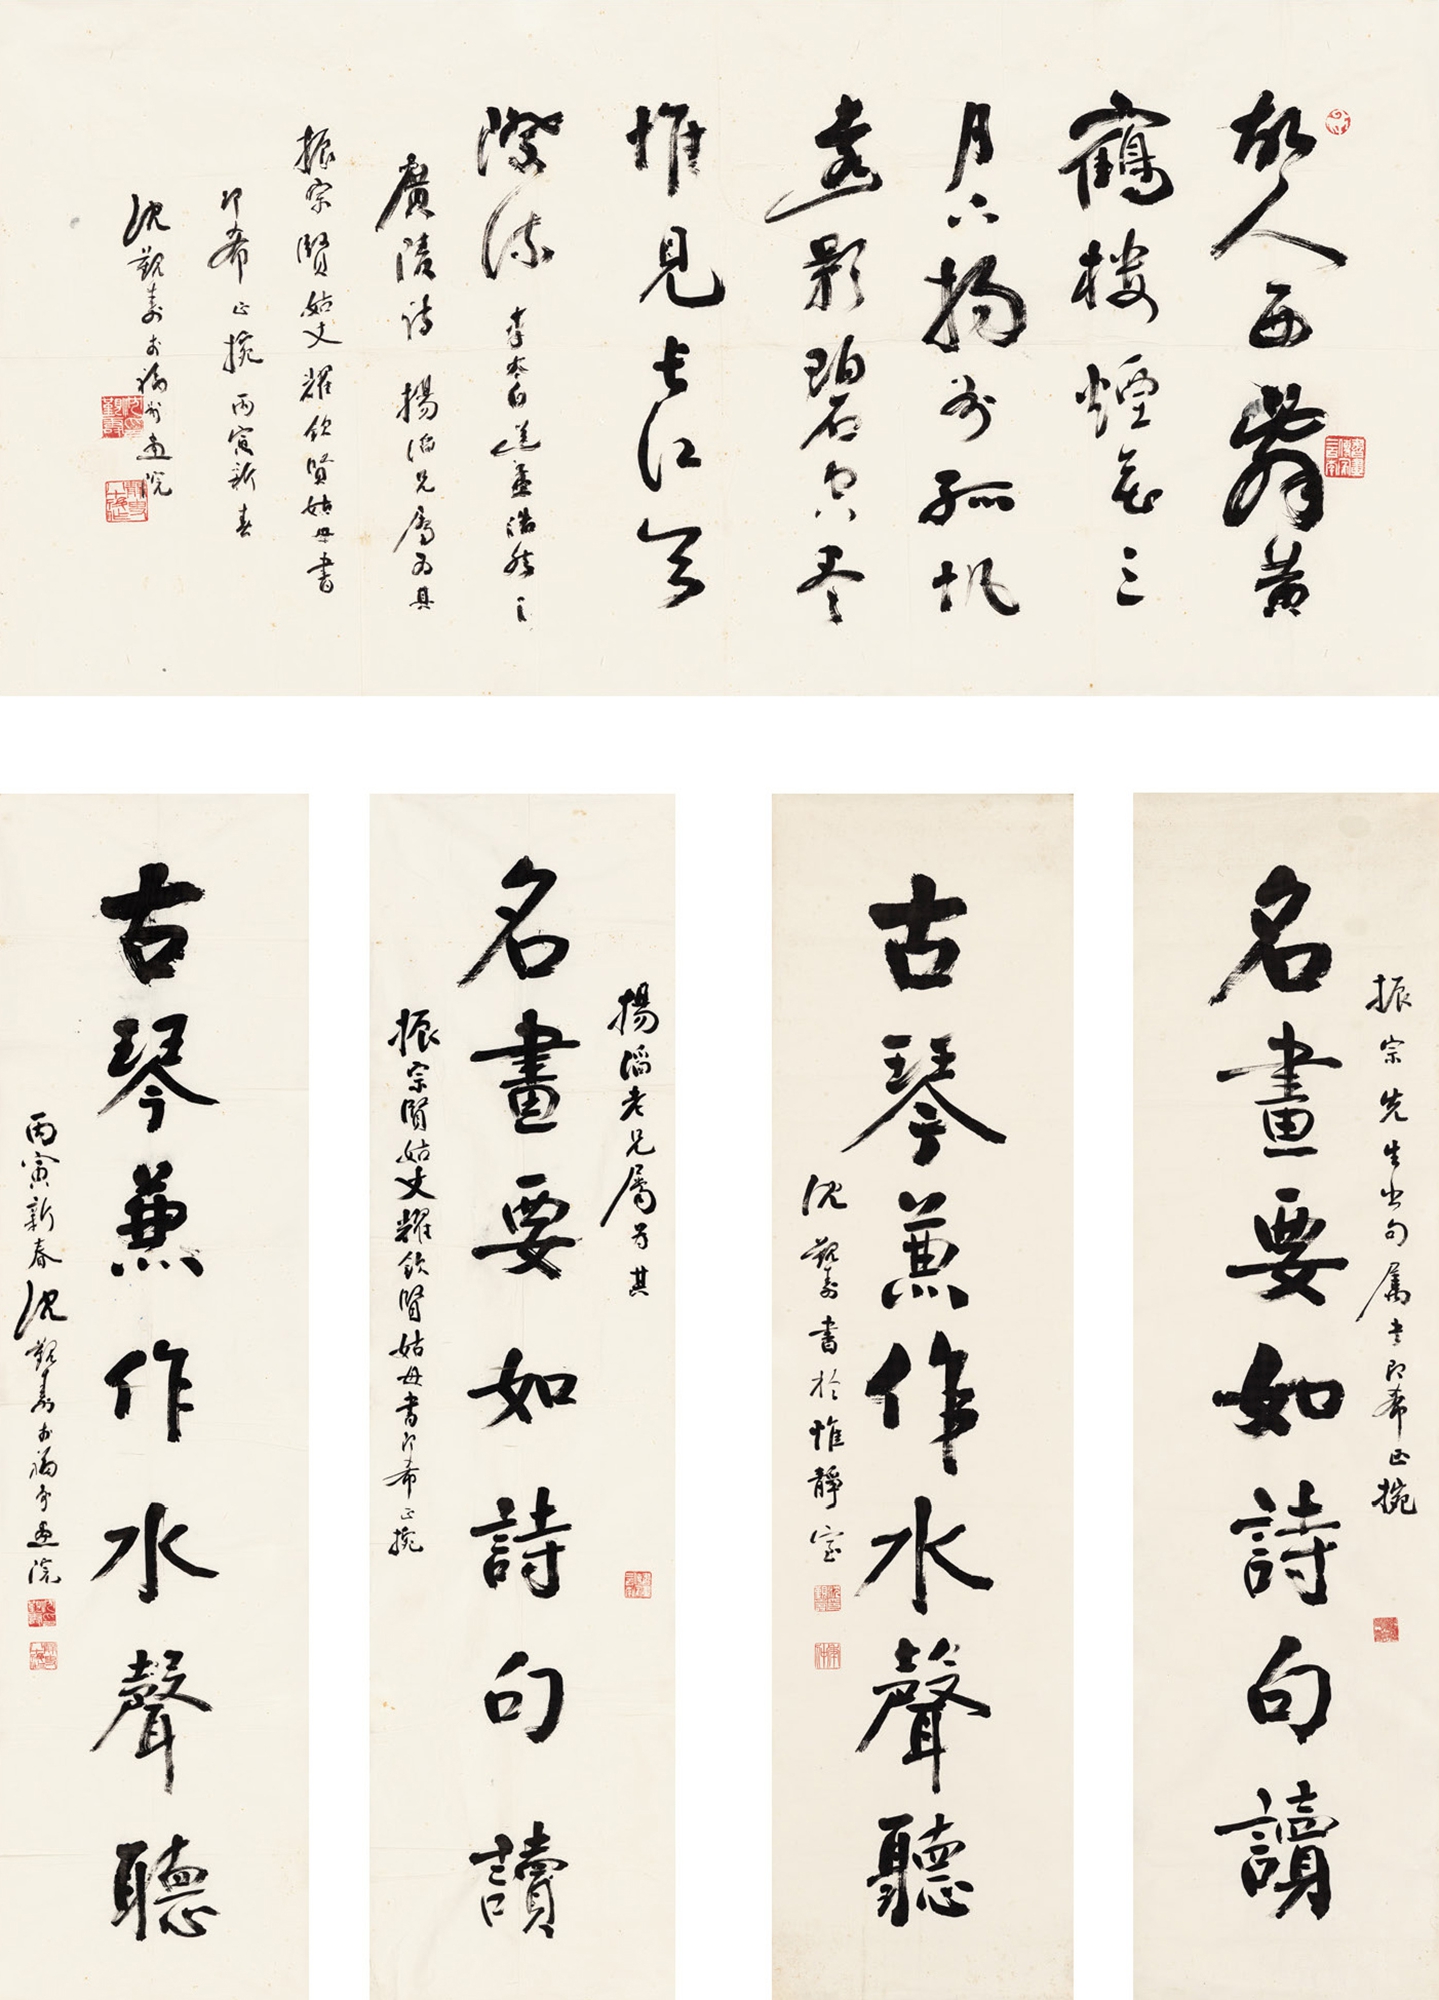 故人西辭黃
鶴樓煙花三
月下揚州孤帆
遠影碧空盡
惟見長江天
際流 李太白送孟浩然之
廣陵詩 揚滔兄屬為其
振宗賢姑丈耀欽賢姑母書
即希正捥 丙寅新春
沈覲壽於福州畫院
振宗先生出句屬書即希正捥
名畫要如詩句讀
古琴兼作水聲聽
沈覲壽書於惟靜室
揚滔老兄屬為其
名畫要如詩句讀
振宗賢姑丈耀欽賢姑母書即希正捥
古琴兼作水聲聽
丙寅新春沈覲壽於福州畫院